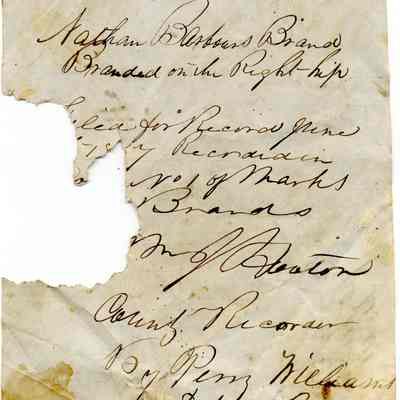 Nathan Barbours Brand
Branded on the Right hip
iled for Record June
Recorded in
No 1 of Marks
Brands
Wm J Heaton
County Recorder
By Perry Williams